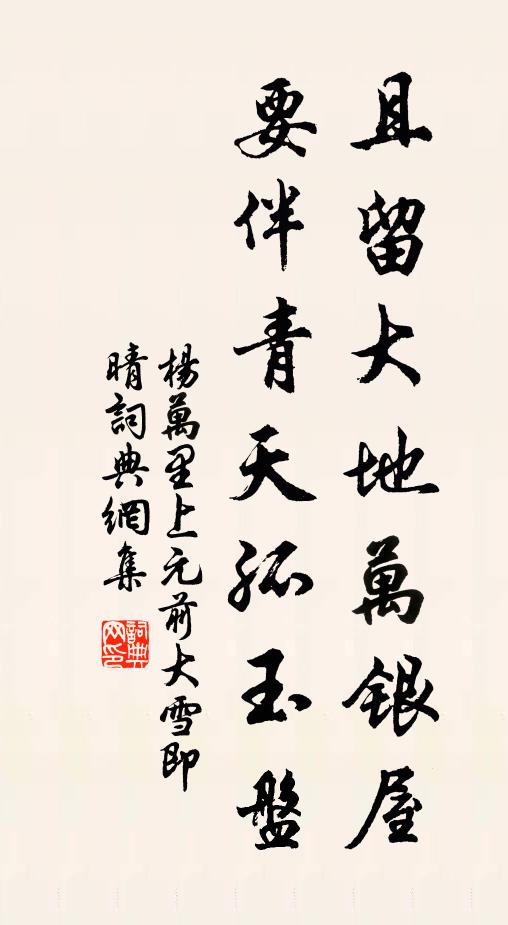 且留大地萬銀屋
要伴青天孤玉盤
楊萬里上元前大雪即
晴詞典網集
詞典
网印